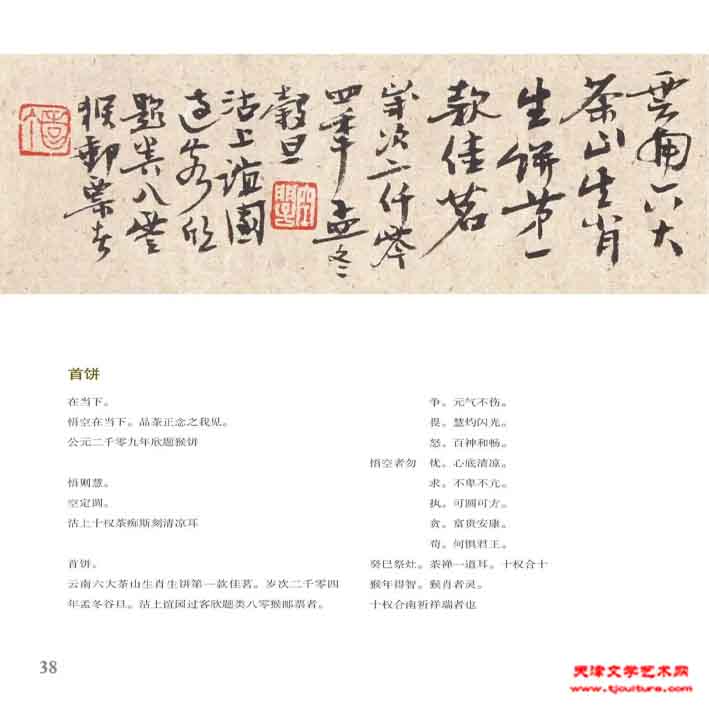 雲南六大
茶山生肖
生餅第一
款佳茗
歲次二仟零
四年孟冬
穀旦
沽上誼園
过客欣
題类八零
猴郵票者
首饼
在当下。
悟空在当下。品茶正念之我见。
公元二千零九年欣题猴饼
悟则慧。
空定圆。
沽上十权茶痴斯刻清凉耳
首饼。
云南六大茶山生肖生饼第一款佳茗。岁次二千零四
年孟冬谷旦。沽上谊园过客欣题类八零猴邮票者。
争。元气不伤。
畏。慧灼闪光。
怒。百神和畅。
悟空者勿 忧。心底清凉。
求。不卑不亢。
执。可圆可方。
贪。富贵安康。
苟。何惧君王。
癸巳祭灶。茶禅一道耳。十权合十
猴年得智。猴肖者灵。
十权合南祈祥瑞者也
38
天津文学艺术网
www.tjculture.com